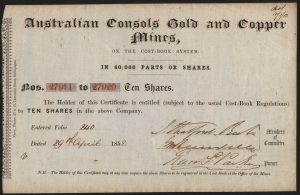 Australian Consols Gold and Copper
Mines,
ON THE COST-BOOK SYSTEM.
IN 60,000 PARTS OR SHARES.
Nos. 27011 to 27020 Ten Shares.
The Holder of this Certificate is entitled (subject to the usual Cost-Book Regulations)
to TEN SHARES in the above Company.
Entered Folio 240
Dated 29th April 1853.
Members of
Committee.
Purser.
N.B.—The Holder of this Certificate may at any time require the above Shares to be registered in the Cost Book at the Office of the Mines.